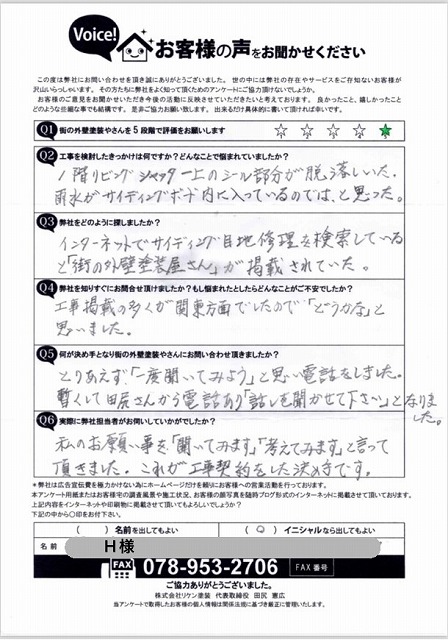 Voice!
お客様の声をお聞かせください
この度は弊社にお問い合わせを頂き誠にありがとうございました。世の中には弊社の存在やサービスをご存知ないお客様が
沢山いらっしゃいます。その方たちに弊社をよく知って頂くためのアンケートにご協力頂けないでしょうか。
お客様のご意見をお聞かせいただき今後の活動に反映させていただきたいと考えております。良かったこと、嬉しかったこと
どのような些細な事でも結構です。是非ご協力お願い致します。出来るだけ具体的に書いて頂ければ幸いです。
Q1 街の外壁塗装やさんを5段階で評価をお願いします
1 2 3 4 5
Q2 工事を検討したきっかけは何ですか?どんなことで悩まれていましたか?
1階リビング シャッター上のシール部分が脱う落しいた。
雨水がサイディングボード内に入っているのでは、と思った。
Q3 弊社をどのように探しましたか?
インターネットでサイディング目地修理を検索している
と「街の外壁塗装屋さん」が掲載されていた。
Q4 弊社を知りすぐにお問合せ頂けましたか?もし悩まれたとしたらどんなことがご不安でしたか?
工事掲載の多くが関東方面でしたので「どうかな」と
思いました。
Q5 何が決め手となり街の外壁塗装やさんにお問い合わせ頂きましたか?
とりあえず「一度聞いてみよう」と思い電話をしました。
暫くして田尻さんから電話あり「話しを聞かせて下さい」となりま
した。
Q6 実際に弊社担当者がお伺いしていかがでしたか?
私のお願い事を「聞いてみます」「考えてみます」と言って
頂きました。これが工事契約をした決め手です。
*弊社は広告宣伝費を極力かけない為にホームページだけを頼りにお客様への営業活動を行っております。
本アンケート用紙またはお客様宅の調査風景や施工状況、お客様の顔写真を随時ブログ形式のインターネットに掲載させて頂いております。
上記内容をインターネットや印刷物に掲載させて頂いてもよろしいでしょうか?
下記の中から〇印をお付け下さい。
( ) 名前を出してもよい ( ○ ) イニシャルなら出してもよい
名前 H様
FAX 078-953-2706 FAX番号
ご協力ありがとうございました。
株式会社リケン塗装 代表取締役 田尻 憲広
当アンケートで取得したお客様の個人情報は関係法規に基づき厳正に管理いたします。